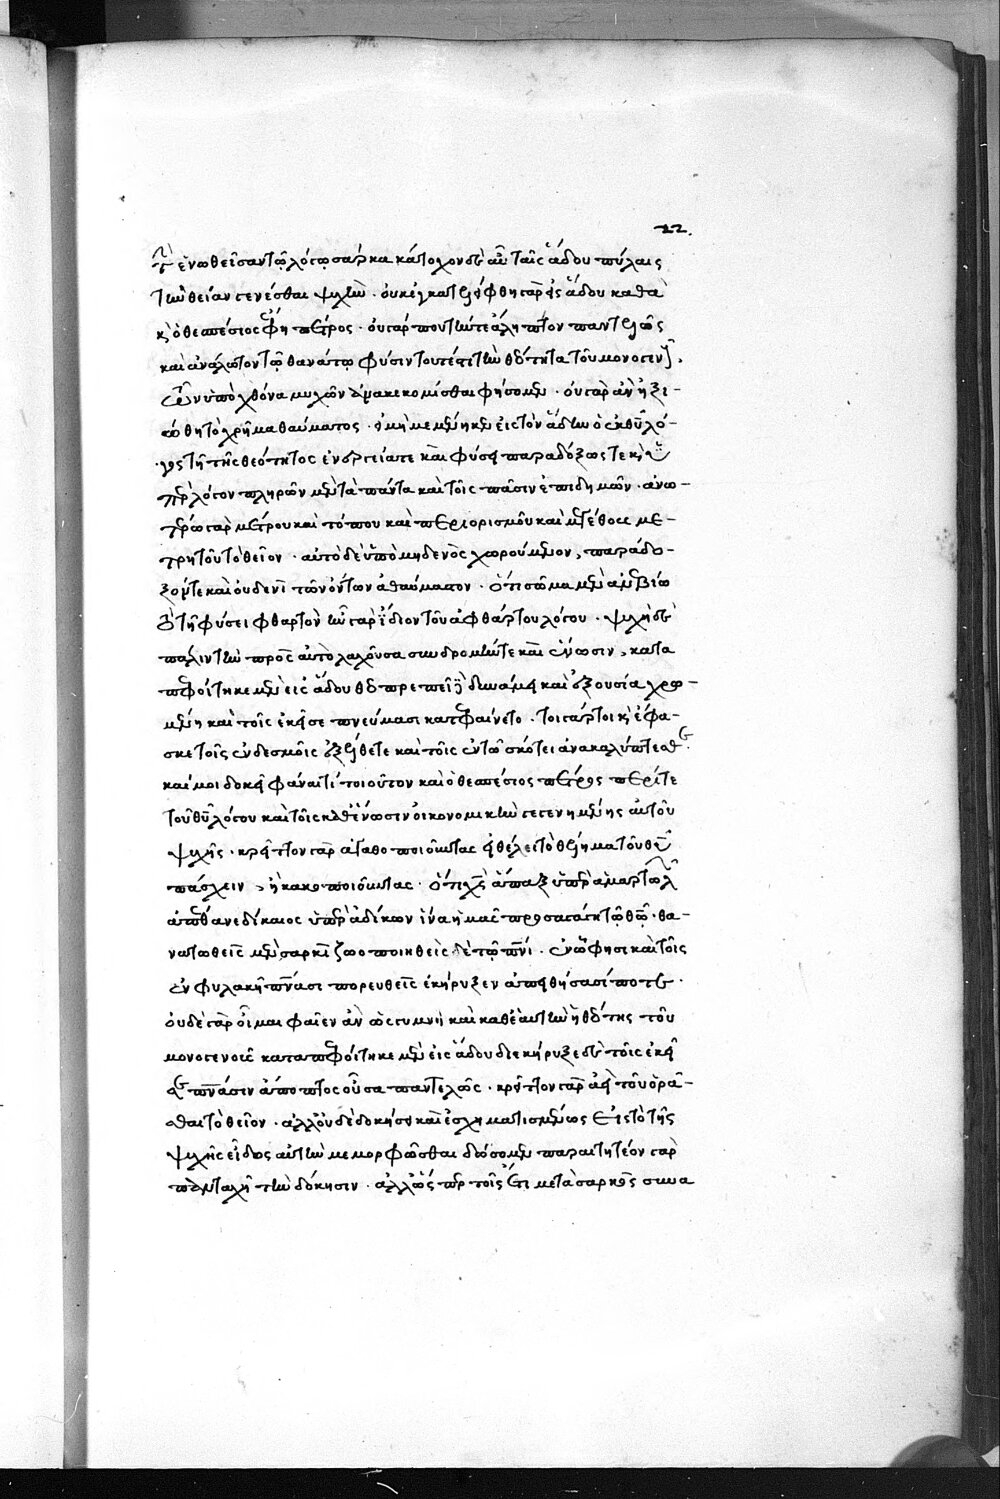 22.
ἑνωθεῖσαν τῷ λόγῳ σάρκα κάτοχον δὲ αὖ ταῖς ᾅδου πύλαις
τὴν θείαν γενέσθαι ψυχὴν · οὐκ ἐγκατελείφθη γὰρ εἰς ᾅδου καθὰ
κ ὁ θεσπέσιος φη πέτρος · οὐ γάρ που τήν τε ἄληπτον παντελῶς
καὶ ἀνάλωτον τῷ θανάτῳ φύσιν τουτέστι τὴν θεότητα τοῦ μονογεν
ὑπὸ χθόνα μυχῶν ἀνακεκομίσθαι φήσομεν · οὐ γὰρ ἂν ἠξι-
ώθη τὸ χρῆμα θαύματος · εἰ μὴ μεμένηκεν εἰς τὸν ᾅδην ὁ ἐκ θυ λό-
γος τῇ τῆς θεότητος ἐνεργείᾳ τε καὶ φύσει παραδόξως τε κ
λόγον πληρῶν μὲν τὰ πάντα καὶ τοῖς πᾶσιν ἐπιδημῶν · ἀνω-
τέρω γὰρ μέτρου καὶ τόπου καὶ περιορισμοῦ καὶ μεγέθους με-
τρητοῦ τὸ θεῖον · αὐτὸ δὲ ὑπὸ μηδενὸς χωρούμενον, παράδο-
ξον τε καὶ οὐδενὶ τῶν ὄντων ἀθαύμαστον · ὅτι σῶμα μὲν ἀνεβίω
τῇ φύσει φθαρτὸν ἦν γὰρ ἴδιον τοῦ ἀφθάρτου λόγου · ψυχὴ δὲ
πάλιν τὴν πρὸς αὐτὸ λαχοῦσα συνδρομήν τε καὶ ἕνωσιν, κατα
πεφοίτηκε μὲν εἰς ᾅδου θεοπρεπεῖ δὲ δυνάμει καὶ ἐξουσίᾳ χρω-
μένη καὶ τοῖς ἐκεῖσε πνεύμασι κατεφαίνετο · τοιγάρτοι κ ἔφα-
σκε τοῖς ἐν δεσμοῖς ἐξέλθετε καὶ τοῖς ἐν τῷ σκότει ἀνακαλύπτεσθε ·
καί μοι δοκεῖ φάναι τι τοιοῦτον καὶ ὁ θεσπέσιος πέτρος περί τε
τοῦ θυ λόγου καὶ τῆς καθ ἕνωσιν οἰκονομικὴν γεγενημένης αὐτοῦ
ψυχῆς · κρεῖττον γὰρ ἀγαθοποιοῦντας εἰ θέλει τὸ θέλημα τοῦ θυ
πάσχειν, ἢ κακοποιοῦντας · ὅτι χς ἅπαξ ὑπὲρ ἁμαρτωλ
ἀπέθανε δίκαιος ὑπὲρ ἀδίκων ἵνα ἡμᾶς προσαγάγῃ τῷ θω · θα-
νατωθεὶς μὲν σαρκὶ ζωοποιηθεὶς δὲ τῷ πνι · ἐν ᾧ φησι καὶ τοῖς
ἐν φυλακῇ πνασι πορευθεὶς ἐκήρυξεν ἀπειθήσασί ποτε ·
οὐδὲ γὰρ οἶμαι φαῖεν ἂν ὡς γυμνὴ καὶ καθ ἑαυτὴν ἡ θεότης τοῦ
μονογενοῦς καταπεφοίτηκε μὲν εἰς ᾅδου διεκήρυξε δὲ τοῖς ἐκεῖ
πνασιν ἄποπτος οὖσα παντελῶς · κρεῖττον γὰρ ἀεὶ τοῦ ὁρᾶ-
σθαι τὸ θεῖον · ἀλλ οὐδὲ δοκήσει καὶ ἐσχηματισμένως εἰς τὸ τῆς
ψυχῆς εἶδος αὐτὴν μεμορφῶσθαι δώσομεν παραιτητέον γὰρ
πανταχῇ τὴν δόκησιν · ἀλλ ὥσπερ τοῖς ἔτι μετὰ σαρκὸς συνα